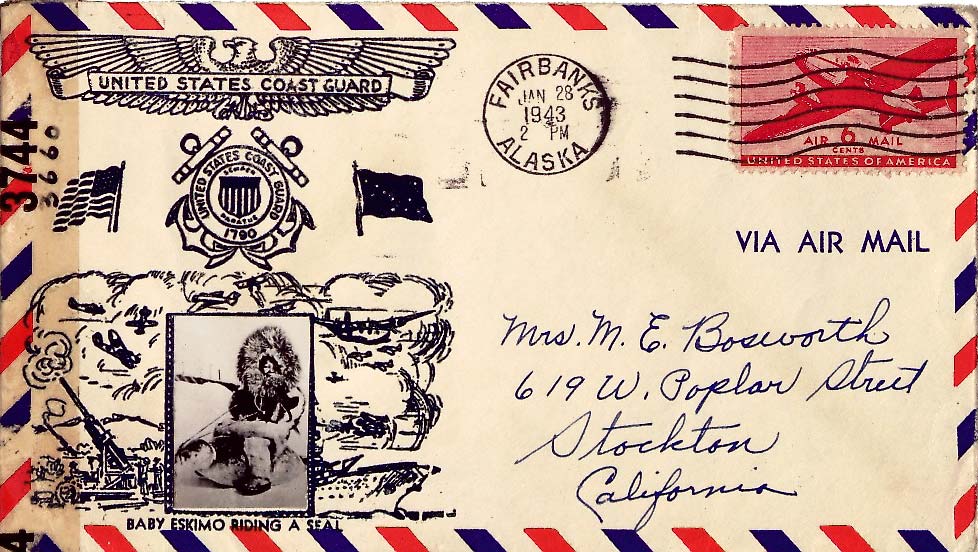 UNITED STATES COAST GUARD
3744
3660
UNITED STATES COAST GUARD
SEMPER
PARATUS
1790
FAIRBANKS
JAN 28
1943
2 PM
ALASKA
AIR 6 MAIL
CENTS
UNITED STATES OF AMERICA
VIA AIR MAIL
Mrs. M. E. Bosworth
619 W. Poplar Street
Stockton
California
BABY ESKIMO RIDING A SEAL
4